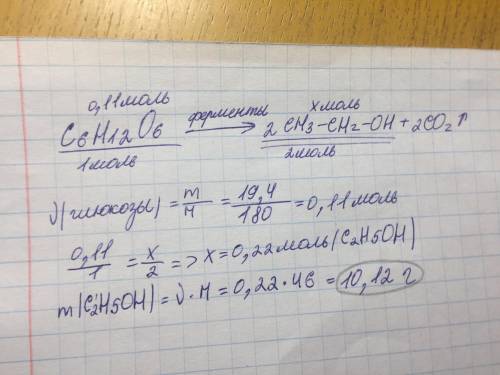 0,11моль
хмоль
C6H12O6 ферменты → 2CH3-CH2-OH + 2CO2↑
1моль
2моль
ν(глюкозы) = m/M = 19,4/180 = 0,11моль
0,11/1 = x/2 => x = 0,22моль(C2H5OH)
m(C2H5OH) = ν·M = 0,22·46 = 10,12 г